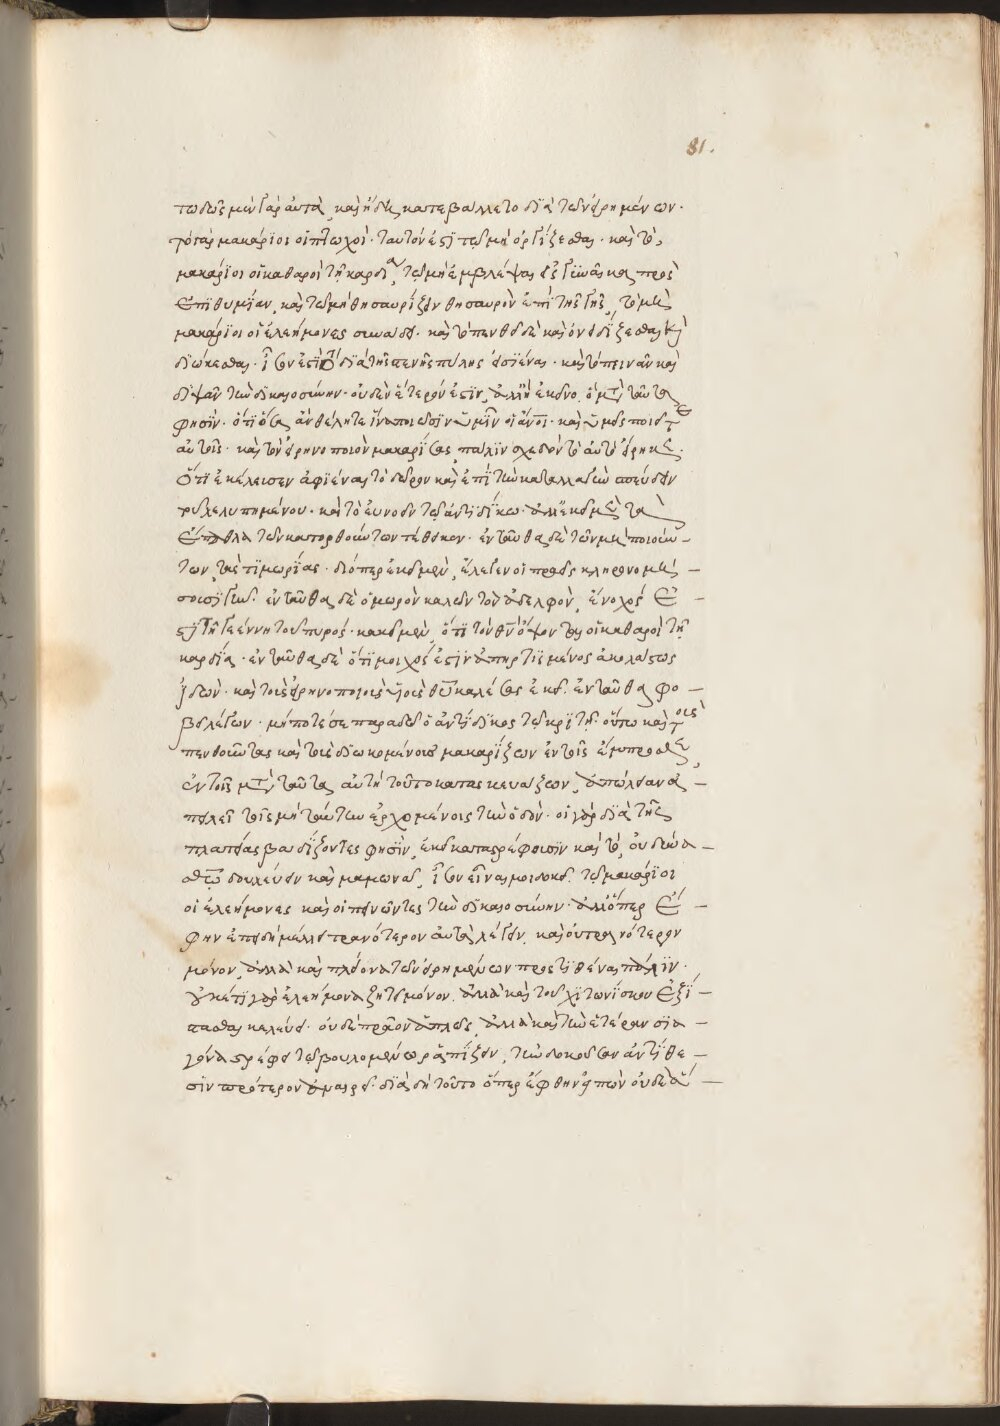 81.
τωδῶς μὲν γὰρ αὐτὰ, καὶ ἤδη κατεβάλλετο διὰ τῶν εἰρημένων.
τό γὰρ μακάριοι οἱ πτωχοὶ. ταυτόν ἐστι τῷ μὴ ὀργίζεσθαι. καὶ τὸ,
μακάριοι οἱ καθαροὶ τῇ καρδίᾳ, τῷ μὴ ἐμβλέψαι εἰς γυναῖκα πρὸς
ἐπιθυμίαν, καὶ τῷ μὴ θησαυρίζειν θησαυρὸν ἐπὶ τῆς γῆς, τὸ
μακάριοι οἱ ἐλεήμονες συνάδει. καὶ τὸ πενθεῖν δὲ καὶ ὀνειδίζεσθαι καὶ
διώκεσθαι. ἶσον ἐστὶ τὸ διὰ τῆς στενῆς πύλης εἰσιέναι. καὶ τὸ πεινᾶν καὶ
διψᾶν τὴν δικαιοσύνην. οὐδὲν ἕτερόν ἐστιν, ἀλλ' ἢ ἐκεῖνο, ὃ μετὰ ταῦτά
φησιν. ὅτι ὅσα ἂν θέλητε ἵνα ποιῶσιν ὑμῖν οἱ ἄνοι. καὶ ὑμεῖς ποιεῖτε
αὐτοῖς. καὶ τὸν εἰρηνοποιὸν μακαρίσας, πάλιν σχεδὸν τὸ αὐτὸ εἴρηκε.
ὅτι ἐκέλευσεν ἀφιέναι τὸ δῶρον καὶ ἐπὶ τὴν καταλλαγὴν σπεύδειν
τοῦ λελυπημένου. καὶ τὸ εὐνοεῖν τῷ ἀντιδίκῳ. ἀλλ' ἐκεῖ μὲν τὰ
ἔπαθλα τῶν κατορθούντων τέθεικεν. ἐνταῦθα δὲ τῶν μὴ ποιούν–
των τὰς τιμωρίας. διόπερ ἐκεῖ μὲν, ἔλεγεν οἱ πρᾳεῖς κληρονομή –
σουσι γῆν. ἐνταῦθα δὲ ὁ μωρὸν καλῶν τὸν ἀδελφὸν, ἔνοχός ἐ –
στι τῇ γεέννῃ τοῦ πυρός. κἀκεῖ μὲν, ὅτι τὸν θν ὄψονται οἱ καθαροὶ τῇ
καρδίᾳ. ἐνταῦθα δὲ ὅτι μοιχός ἐστιν ἀπηρτισμένος ἀκολάστως
ἰδών. καὶ τοὺς εἰρηνοποιοὺς υἱοὺς θυ καλέσας ἐκεῖ. ἐνταῦθα φο –
βεῖ λέγων. μήποτέ σε παραδῷ ὁ ἀντίδικος τῷ κριτῇ. οὕτω καὶ τοὺς
πενθοῦντας καὶ τοὺς διωκομένους μακαρίζων ἐν τοῖς ἔμπροσθε,
ἐν τοῖς μετὰ ταῦτα αὐτὴ τοῦτο κατασκευάζων, ἀπώλειαν ἀ –
πειλεῖ τοῖς μὴ ταύτην ἐρχομένοις τὴν ὁδὸν. οἱ γὰρ διὰ τῆς
πλατείας βαδίζοντές φησιν, ἐκεῖ καταστρέφουσιν καὶ τὸ, οὐ δύνα –
θῶ δουλεύειν καὶ μαμωνᾷ, ἶσον εἶναί μοι δοκεῖ. τῷ μακάριοι
οἱ ἐλεήμονες καὶ οἱ πεινῶντες τὴν δικαιοσύνην. ἀλλ' ὅπερ ἔ –
φην ἐπειδὴ μέλλει τρανότερον αὐτὰ λέγειν, καὶ οὐ τρανότερον
μόνον, ἀλλὰ καὶ πλείονα τῶν εἰρημένων προστιθέναι πάλιν.
οὐκέτι γὰρ ἐλεήμονα ζητεῖ μόνον. ἀλλὰ καὶ τοῦ χιτωνίσκου ἐξί –
στασθαι κελεύει. οὐδὲ πρᾷον ἁπλῶς, ἀλλὰ καὶ τὴν ἑτέραν σια –
γόνα στρέφει τῷ βουλομένῳ ῥαπίζειν, τὴν δοκοῦσαν ἀντίθε –
σιν πρότερον ἀναιρεῖ. διὰ δὴ τοῦτο ὅπερ ἔφθην εἰπὼν οὐδὲ ἅ –